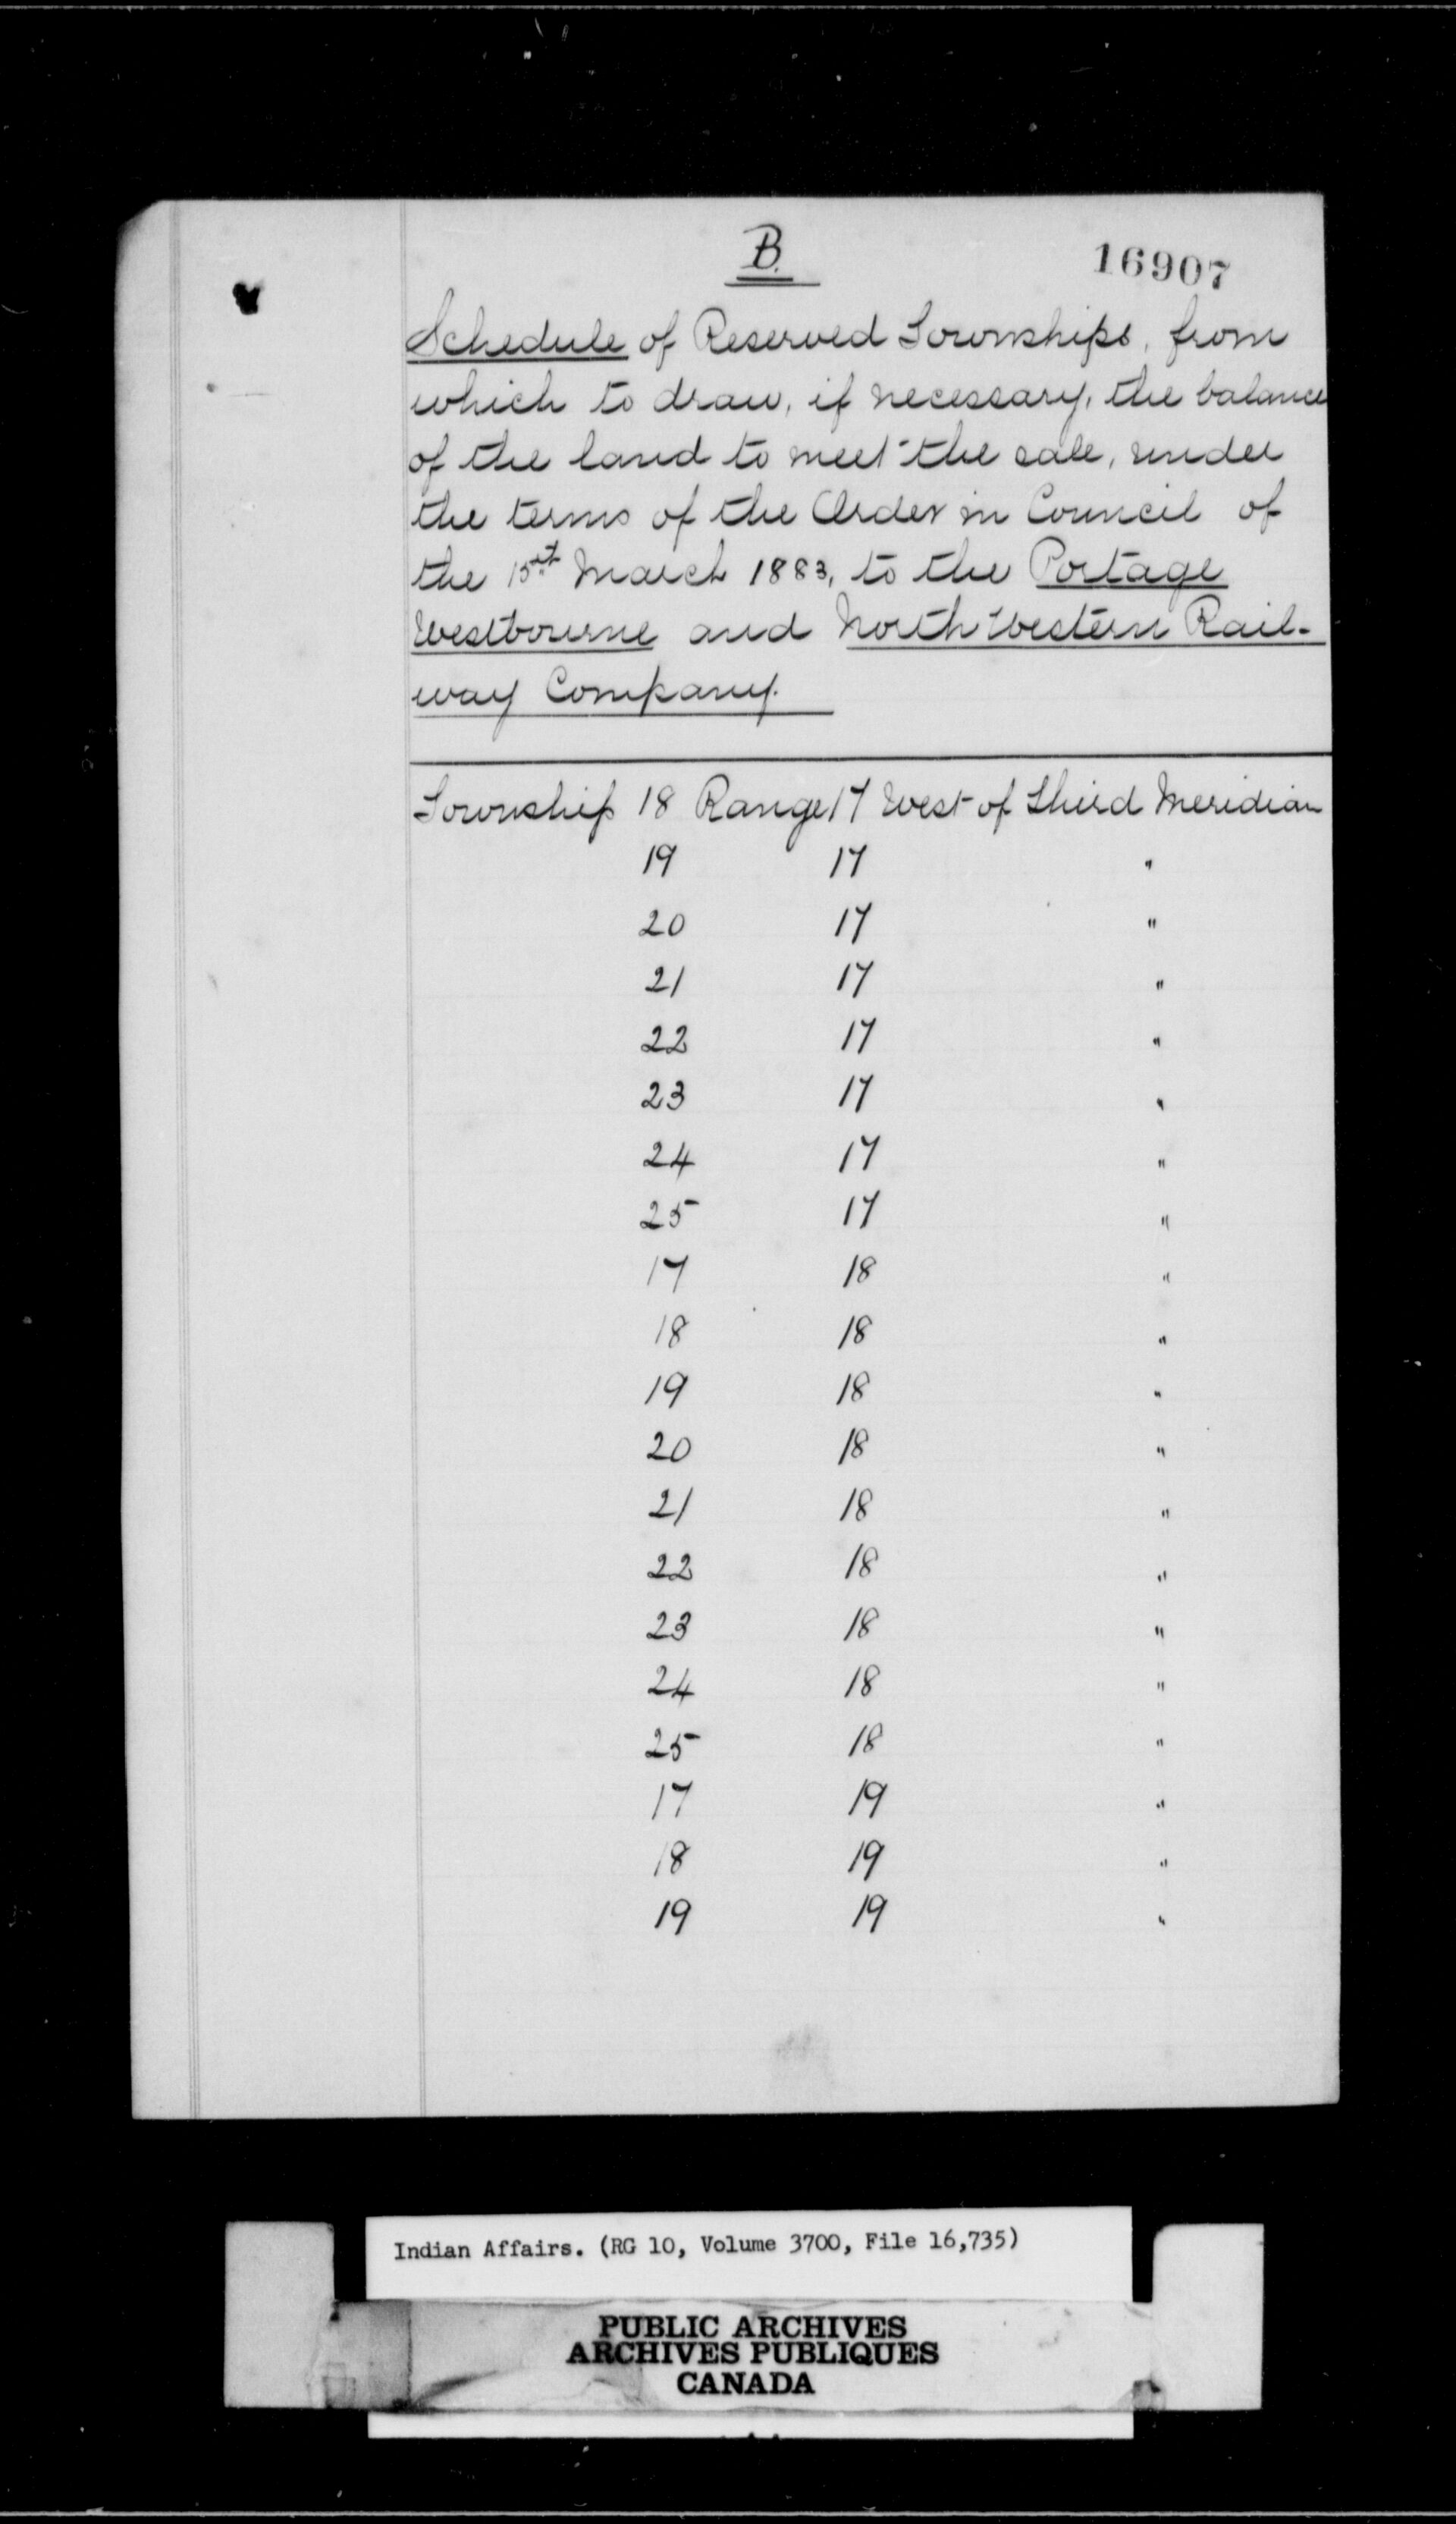 B.
16907
Schedule of Reserved Townships, from
which to draw, if necessary, the balance
of the land to meet the sale, under
the terms of the Order in Council of
the 15th March 1883, to the Portage
Westbourne and North Western Rail-
way Company.
Township 18 Range 17 West of Third Meridian
19 17 "
20 17 "
21 17 "
22 17 "
23 17 "
24 17 "
25 17 "
17 18 "
18 18 "
19 18 "
20 18 "
21 18 "
22 18 "
23 18 "
24 18 "
25 18 "
17 19 "
18 19 "
19 19 "
Indian Affairs. (RG 10, Volume 3700, File 16,735)
PUBLIC ARCHIVES
ARCHIVES PUBLIQUES
CANADA